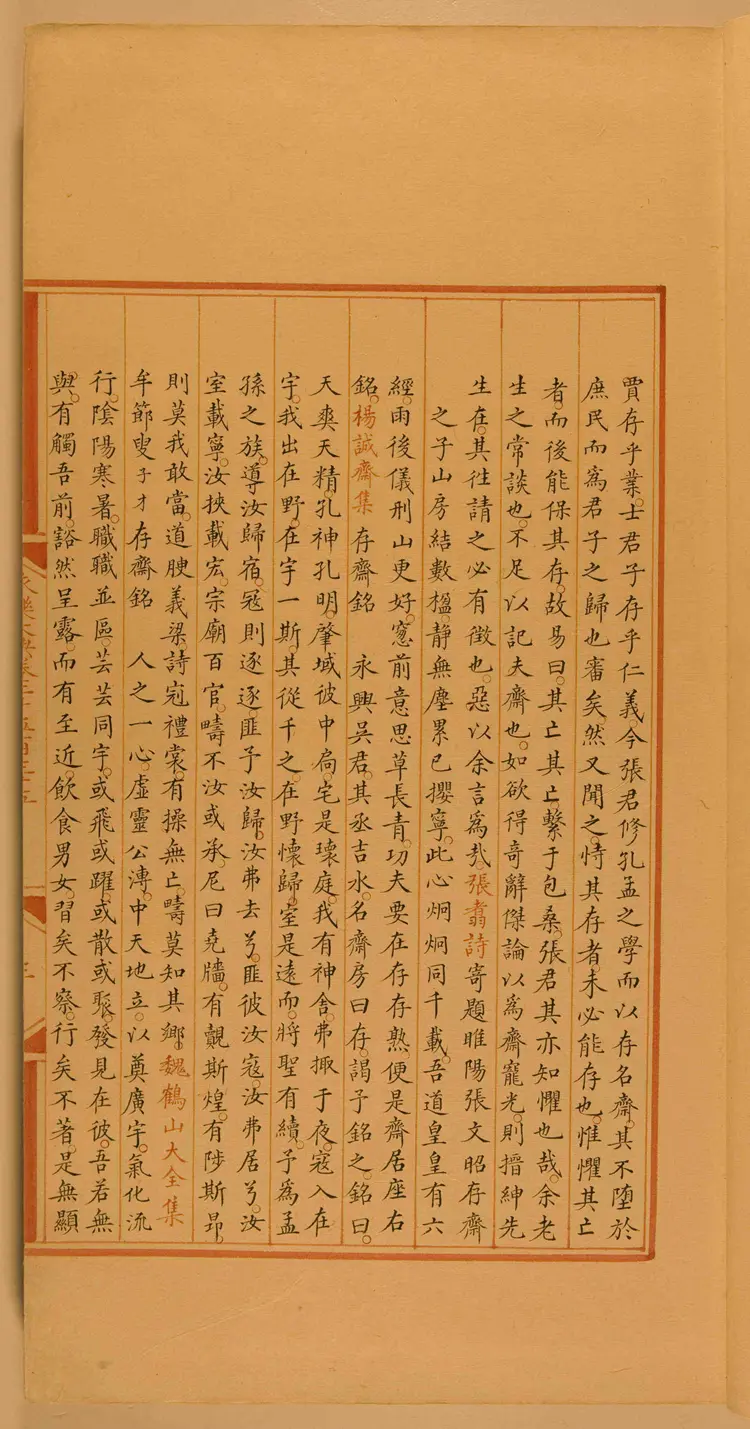 賈存乎業。士君子存乎仁義。今張君修孔孟之學而以存名齋。其不墮於
庶民而爲君子之歸也審矣。然又聞之。恃其存者。未必能存也。惟懼其亡
者。而後能保其存。故易曰。其亡其亡。繫于包桑。張君其亦知懼也哉。余老
生之常談也。不足以記夫齋也。如欲得奇辭傑論以爲齋寵光。則搢紳先
生在。其徃請之必有徵也。惡以余言爲哉。張翥詩寄題睢陽張文昭存齋
之子山房結數楹。静無塵累已攖寧。此心炯炯同千載。吾道皇皇有六
經。雨後儀刑山更好。窓前意思草長青。功夫要在存存熟。便是齋居座右
銘。楊誠齋集 存齋銘 永興吴君。其丞吉水。名齋房曰存。謁予銘之。銘曰。
天奭天精。孔神孔明。肇域彼中。扃宅是瓌庭。我有神舍。弗掫于夜。寇入在
宇。我出在野。在宇一斯。其從千之。在野懷歸。室是遠而。將聖有續。予爲孟
孫之族。導汝歸宿。寇則逐逐。匪予汝歸。汝弗去兮。匪彼汝寇。汝弗居兮。汝
室載寧。汝挾載宏。宗廟百官。疇不汝或承。尼曰堯牆。有覿斯煌。有陟斯昂。
則莫我敢當。道腴義梁。詩㓂禮裳。有操無亡。疇莫知其鄉。魏鶴山大全集
牟節叟子才存齋銘 人之一心。虛靈公溥。中天地立。以奠廣宇。氣化流
行。隂陽寒暑。職職並區。芸芸同宇。或飛或躍。或散或聚。發見在彼。吾若無
與。有觸吾前。豁然呈露。而有至近。飲食男女。習矣不察。行矣不著。是無顯